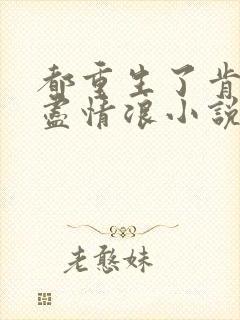 都重生了肯
盡情浪小說
老憨妹